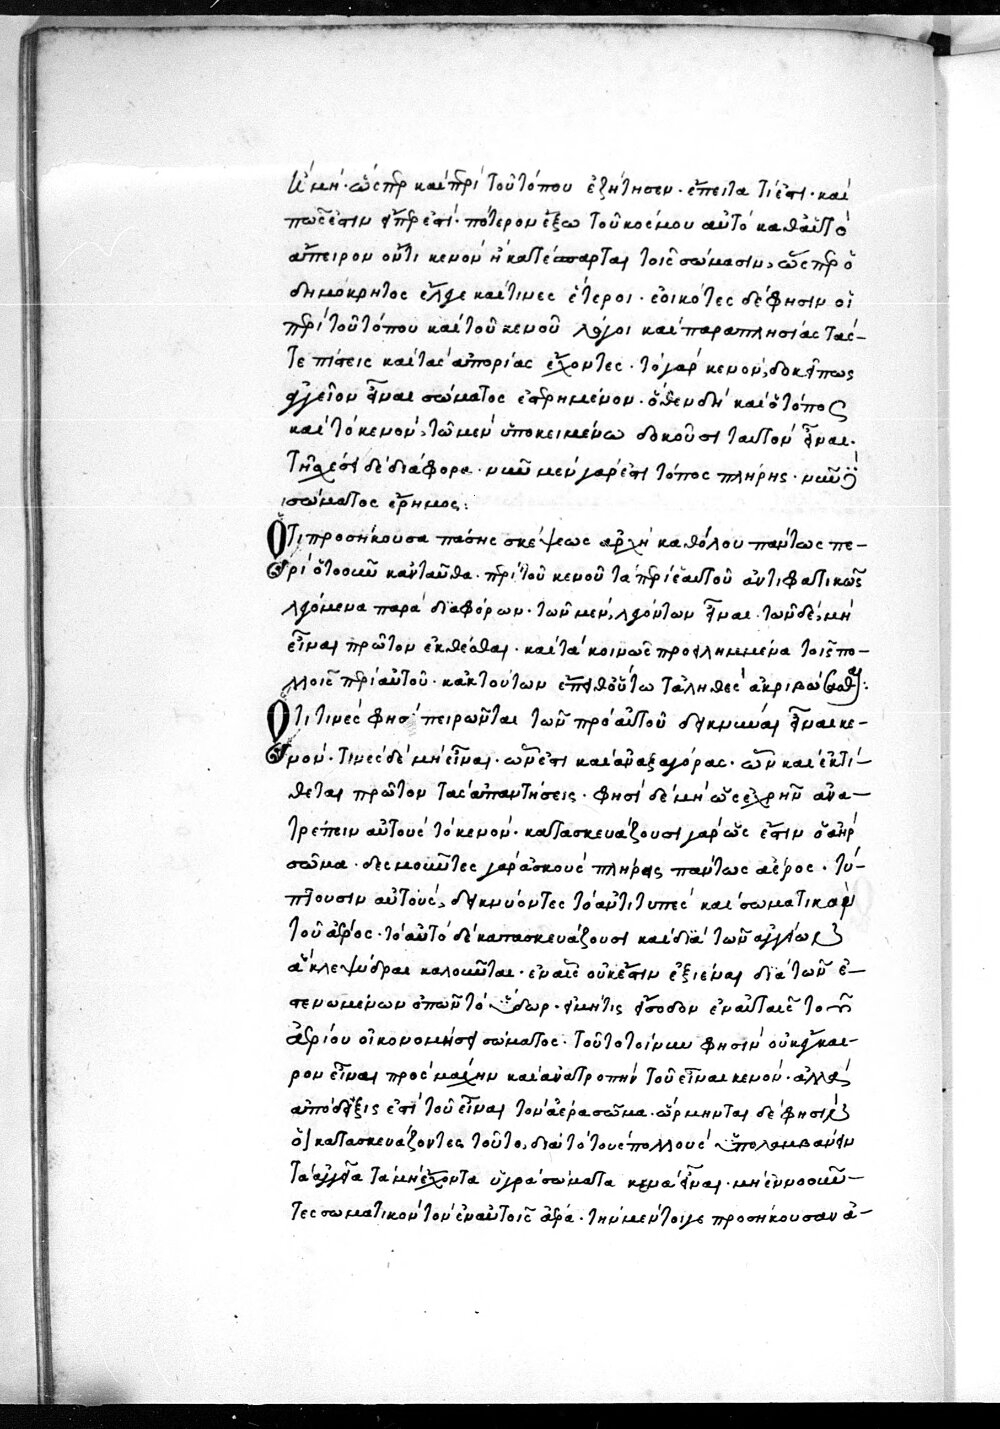 ἢ μή· ὥσπερ καὶ περὶ τοῦ τόπου ἐζήτησεν· ἔπειτα τί ἐστι· καὶ
πῶς ἐστιν εἴπερ ἐστί· πότερον ἔξω τοῦ κόσμου αὐτὸ καθ' αὑτὸ
ἄπειρον οὔτι κενὸν ἢ κατέσπαρται τοῖς σώμασιν, ὥσπερ ὁ
δημόκρητος εἶπε καί τινες ἕτεροι· ἐοικότες δέ φησιν οἱ
περὶ τοῦ τόπου καὶ τοῦ κενοῦ λόγοι καὶ παραπλησίας τάς-
τε πίστεις καὶ τὰς ἀπορίας ἔχοντες· τὸ γὰρ κενὸν, δοκεῖ πως
ἀγγεῖον εἶναι σώματος ἐστερημένον· ὅθεν δὴ καὶ ὁ τόπος
καὶ τὸ κενὸν, τῷ μὲν ὑποκειμένῳ δοκοῦσι ταυτὸν εἶναι·
τῇ σχέσι δὲ διάφορα· νῦν μὲν γάρ ἐστι τόπος πλήρης· νῦν δὲ
σώματος ἔρημος:
Ὅτι προσήκουσα πάσης σκέψεως ἀρχὴ καθόλου πάντως πε-
ρὶ ὅτου οὖν κἀνταῦθα· περὶ τοῦ κενοῦ τὰ περὶ ἑαυτοῦ ἀντιφατικῶς
λεγόμενα παρὰ διαφόρων· τῶν μὲν, λεγόντων εἶναι· τῶν δὲ, μὴ
εἶναι πρῶτον ἐκθέσθαι· καὶ τὰ κοινῶς προειλημμένα τοῖς πο-
λλοῖς περὶ αὐτοῦ· κἀκ τούτων ἔπειθ' οὕτω τἀληθὲς ἀκριβῶσασθαι:
Ὅτι τινές φησι πειρῶνται τῶν πρὸ αὐτοῦ δεικνύναι εἶναι κε-
νόν· τινὲς δὲ μὴ εἶναι· ὧν ἐστι καὶ ἀναξαγόρας· ὧν καὶ ἐκτί-
θεται πρῶτον τὰς ἀπαντήσεις· φησὶ δὲ μὴ ὡς ἐχρῆν ἀνα-
τρέπειν αὐτοὺς τὸ κενόν· κατασκευάζουσι γὰρ ὥς ἐστιν ὁ ἀὴρ
σῶμα· δεσμοῦντες γὰρ ἀσκοὺς πλήρεις πάντως ἀέρος· τύ-
πτουσιν αὐτοὺς, δεικνύοντες τὸ ἀντιτυπὲς καὶ σωματικὸν
τοῦ ἀέρος· τὸ αὐτὸ δὲ καπασκευάζουσι καὶ διὰ τῶν ἀγγείων
ἃ κλεψύδραι καλοῦνται· ἐν αἷς οὐκ ἔστιν ἐξιέναι διὰ τῶν ἐ-
στενωμένων ὀπῶν τὸ ὕδωρ· εἰ μήτις εἴσοδον ἐν αὐταῖς τοῦ
ἀερίου οἰκονομήσει σώματος· τοῦτο τοίνυν φησὶν οὐκ εὔκαι-
ρον εἶναι πρὸς μάχην καὶ ἀνατροπὴν τοῦ εἶναι κενόν· ἀλλ'
ἀπόδειξις ἐστὶ τοῦ εἶναι τὸν ἀέρα σῶμα· ὥρμηνται δέ φησιν
οἱ κατασκευάζοντες τοῦτο, διὰ τὸ τοὺς πολλοὺς ὑπολαμβάνειν
τὰ ἀγγεῖα τὰ μὴ ἔχοντα ὑγρὰ σώματα κενὰ εἶναι· μὴ ἐννοοῦν-
τες σωματικὸν τὸν ἐν αὐτοῖς ἀέρα· τὴν μέντοιγε προσήκουσαν ἀ-